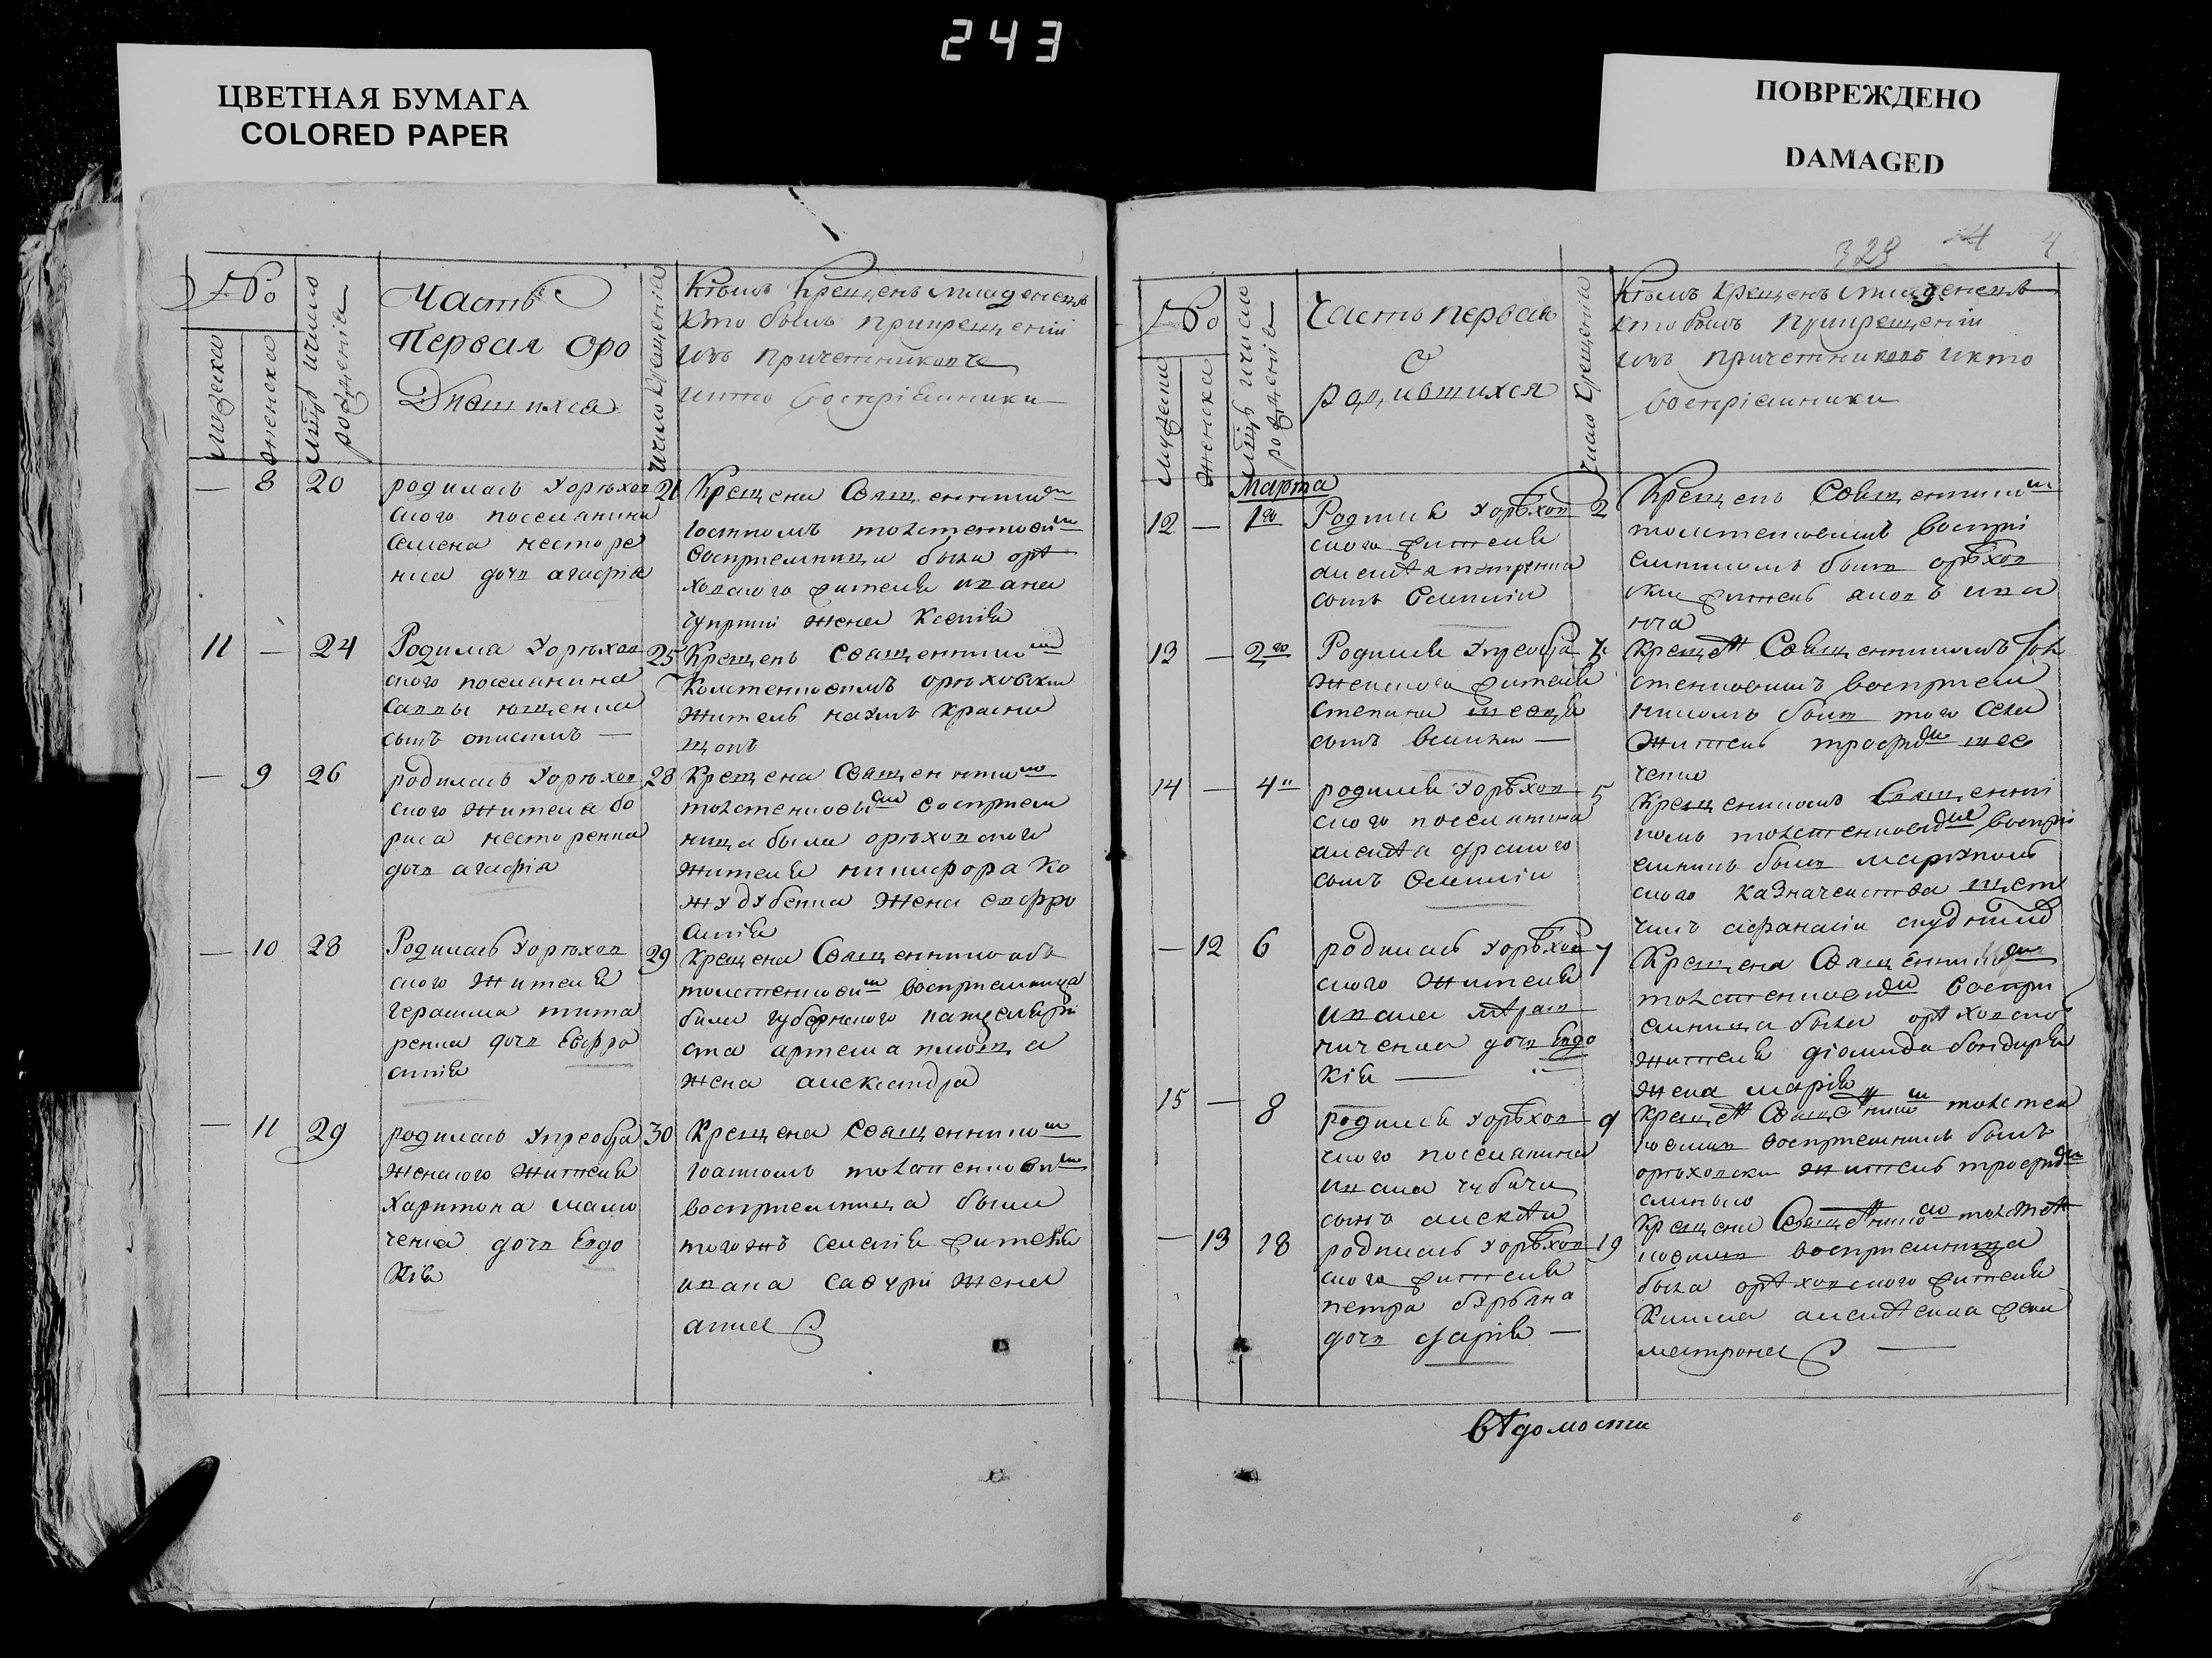 243
ЦВЕТНАЯ БУМАГА
COLORED PAPER
ПОВРЕЖДЕНО
DAMAGED
№
мужеска
женска
рожденія
Часть
Первая оро
Дившихся
Число Крещенія
Кѣмъ Крещенъ младенецъ
кто былъ прикрещеніи
изъ причетниковъ
икто воспріемники
8 20
родилась Уорѣхов
ского поселянина
Семена несторе
нка дочь агафія
21
Крещена Священником
воспріемница была орѣ
ховского жителя ивана
жена Ксенія
11 — 24
Родился Уорѣхов
ского поселянина
Саввы ющенка
сынъ
25
Крещенъ Священником
толстенковимъ орѣховскии
житель наумъ красно
щокъ
— 9 26
родилась Уорѣхов
ского жителя бо
риса несторенка
дочь агафія
28
Крещена Священником
толстенковим воспріем
ница была орѣховского
жителя никифора ко
жудубенка жена евфро
синія
— 10 28
Родилась Уорѣхов
ского жителя
герасима тита
ренка дочь Евфро
синія
29
Крещена Священником
толстенковим воспріемница
была губернского канцеляри
ста артема
жена александра
— 11 29
родилась Упреобра
женского жителя
харитона мамо
ченка дочь Евдо
кія
30
Крещена Священником
толстенковим
воспріемница была
тогожъ селенія жителя
ивана савури жена
анна
329 4 4
№
мужеска
женска
мцъ ичисло
рожденія
Часть первая
о
родившихся
Число Крещенія
Кѣмъ крещенъ младенецъ
кто былъ прикрещеніи
изъ причетниковъ икто
воспріемники
Марта
12 — 1го
Родился Уорѣхов
ского жителя
алексѣя петренка
сынъ Семеніи
2
Крещенъ Священником
толстенковимъ воспрі
емникомъ былъ орѣхов
скіи житель яковъ ива
13 — 2го
Родился Упреобра
женского жителя
степана швеца
сынъ
Крещен Священникомъ тол
стенковимъ воспріем
никомъ былъ того села
житель трофим шев
ченко
14 — 4
родился Уорѣхов
ского поселянина
алексѣя
сынъ Семеніи
5
толстенковим воспрі
емникъ былъ маріупол
ского казначейства щет
чикъ афанасіи
— 12 6
родилась Уорѣхов
ского жителя
ивана
дочь Евдо
кія —
7
Крещена Священником
толстенковим воспрі
емница была орѣховско
жителя діомида бондаря
жена марія
15 — 8
родился Уорѣхов
ского поселянина
ивана чубача
сынъ алексѣи
9
Крещен Священником толстен
ковим воспріемникъ былъ
орѣховскии житель трофим
— 13 18
родилась Уорѣхов
ского жителя
петра бурьяна
дочь дарія —
19
Крещена Священником толстен
ковим воспріемница
была орѣховского жителя
алексѣенка жена
матрона —
вѣдомости